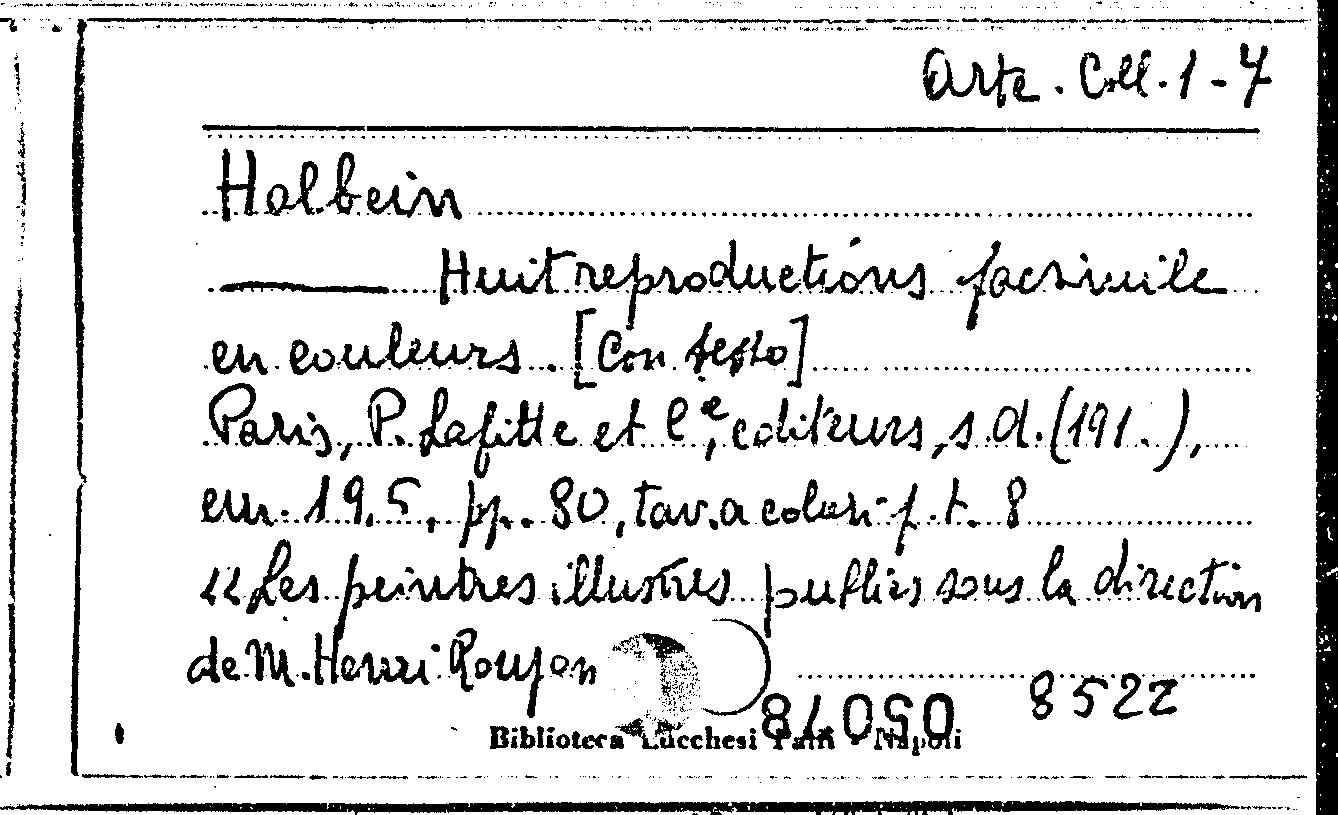 Arte. Coll. 1-7
Holbein
Huit reproductións facsimile
en couleurs. [Con testo]
Paris, P. Lafitte et C.e, editeurs, s.d. (191.),
cm. 19,5, pp. 80, tav. a colori f.t. 8
«Les peintres illustres publiés sous la direction
de M. Henri Roujon
050078 8522
Biblioteca Lucchesi Palli - Napoli